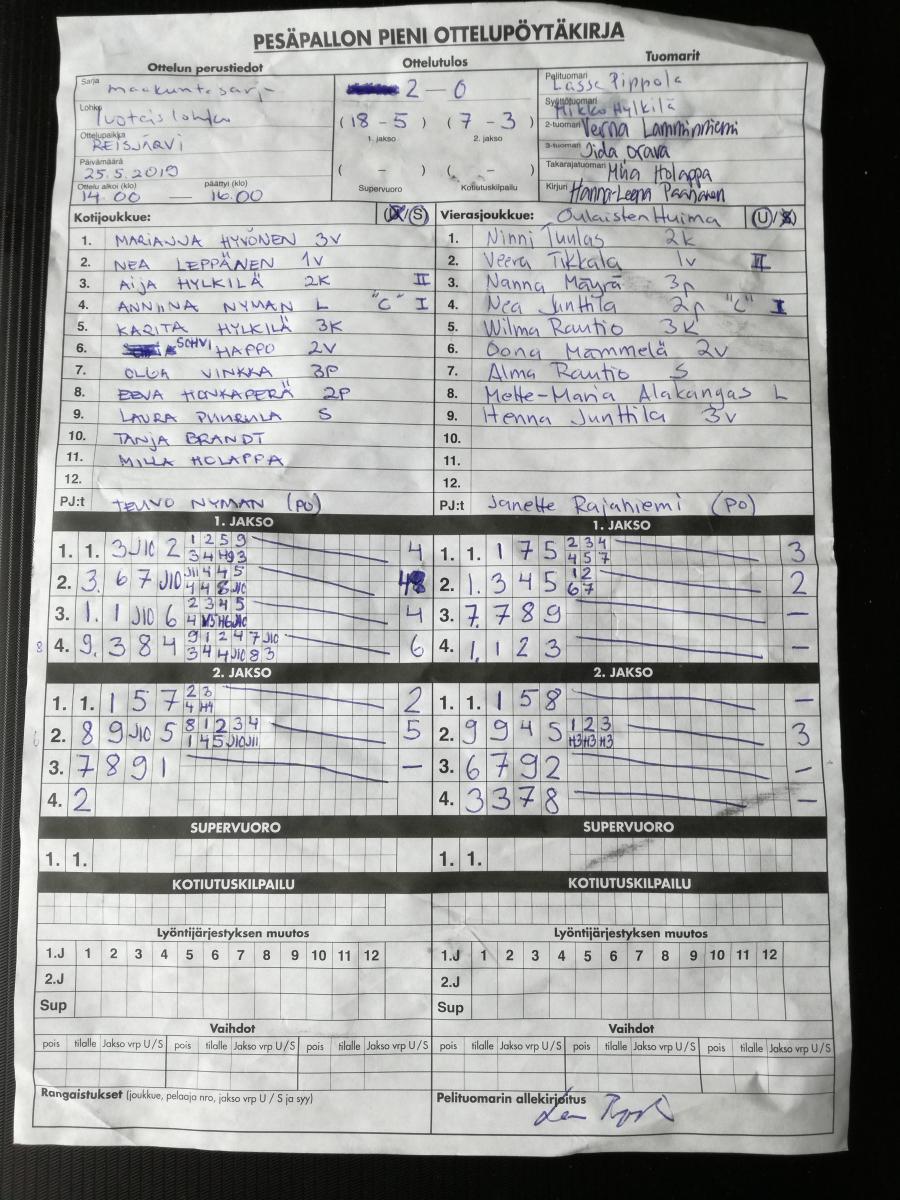 PESÄPALLON PIENI OTTELUPÖYTÄKIRJA
Ottelun perustiedot
Sarja maakuntasarja
Lohko
Ottelupaikka REISJÄRVI
Päivämäärä 25.5.2019
Ottelu alkoi (klo) päättyi (klo)
14.00 — 16.00
Ottelutulos
2 – 0
( 18 – 5 ) ( 7 – 3 )
1. jakso 2. jakso
( – ) ( – )
Supervuoro Kotiutuskilpailu
Tuomarit
Pelituomari Lasse Pippola
Syöttötuomari Mikko Hylkilä
2-tuomari Verna Lamminniemi
3-tuomari Iida Orava
Takarajatuomari Miia Holappa
Kirjuri Hanna-Leena Paananen
Kotijoukkue: (U/S)
1. MARIANNA HYVÖNEN 3V
2. NEA LEPPÄNEN 1V
3. AIJA HYLKILÄ 2K II
4. ANNIINA NYMAN L "C" I
5. KARITA HYLKILÄ 3K
6. SOHVI HAPPO 2V
7. OLGA VINKKA 3P
8. EEVA HONKAPERÄ 2P
9. LAURA S
10. TANJA BRANDT
11. MILLA HOLAPPA
12.
PJ:t TEUVO NYMAN (PO)
Vierasjoukkue: Oulaisten Huima (U/S)
1. Ninni Tuulas 2k
2. Veera Tikkala 1v II
3. Nanna Mäyrä 3p
4. Nea Junttila 2p "C" I
5. Wilma Rautio 3K
6. Oona Mämmelä 2v
7. Alma Rautio S
8. Mette-Maria Alakangas L
9. Henna Junttila 3v
10.
11.
12.
PJ:t Janette Rajaniemi (PO)
1. JAKSO
1. 1. 3 J10 2 1 2 5 9 4
3 4 H9 3
2. 3. 6 7 J10 J11 4 4 5
4 4 8 J10
3. 1. 1 J10 6 2 3 4 5 4
8 4. 9. 3 8 4 9 1 2 4 7 J10 6
3 4 4 J10 8 3
1. JAKSO
1. 1. 1 7 5 2 3 4 3
4 5 7
2. 1. 3 4 5 1 2 2
6 7
3. 7. 7 8 9 –
4. 1. 1 2 3 –
2. JAKSO
1. 1. 1 5 7 2 3 2
4 H4
2. 8 9 J10 5 8 1 2 3 4 5
1 4 5 J10 J11
3. 7 8 9 1 –
4. 2
2. JAKSO
1. 1. 1 5 8 –
2. 9 9 4 5 1 2 3 3
H3 H3 H3
3. 6 7 9 2 –
4. 3 3 7 8 –
SUPERVUORO
1. 1.
SUPERVUORO
1. 1.
KOTIUTUSKILPAILU
KOTIUTUSKILPAILU
Lyöntijärjestyksen muutos
1.J 1 2 3 4 5 6 7 8 9 10 11 12
2.J
Sup
Lyöntijärjestyksen muutos
1.J 1 2 3 4 5 6 7 8 9 10 11 12
2.J
Sup
Vaihdot
pois tilalle Jakso vrp U/S pois tilalle Jakso vrp U/S pois tilalle Jakso vrp U/S
Vaihdot
pois tilalle Jakso vrp U/S pois tilalle Jakso vrp U/S pois tilalle Jakso vrp U/S
Rangaistukset (joukkue, pelaaja nro, jakso vrp U / S ja syy)
Pelituomarin allekirjoitus